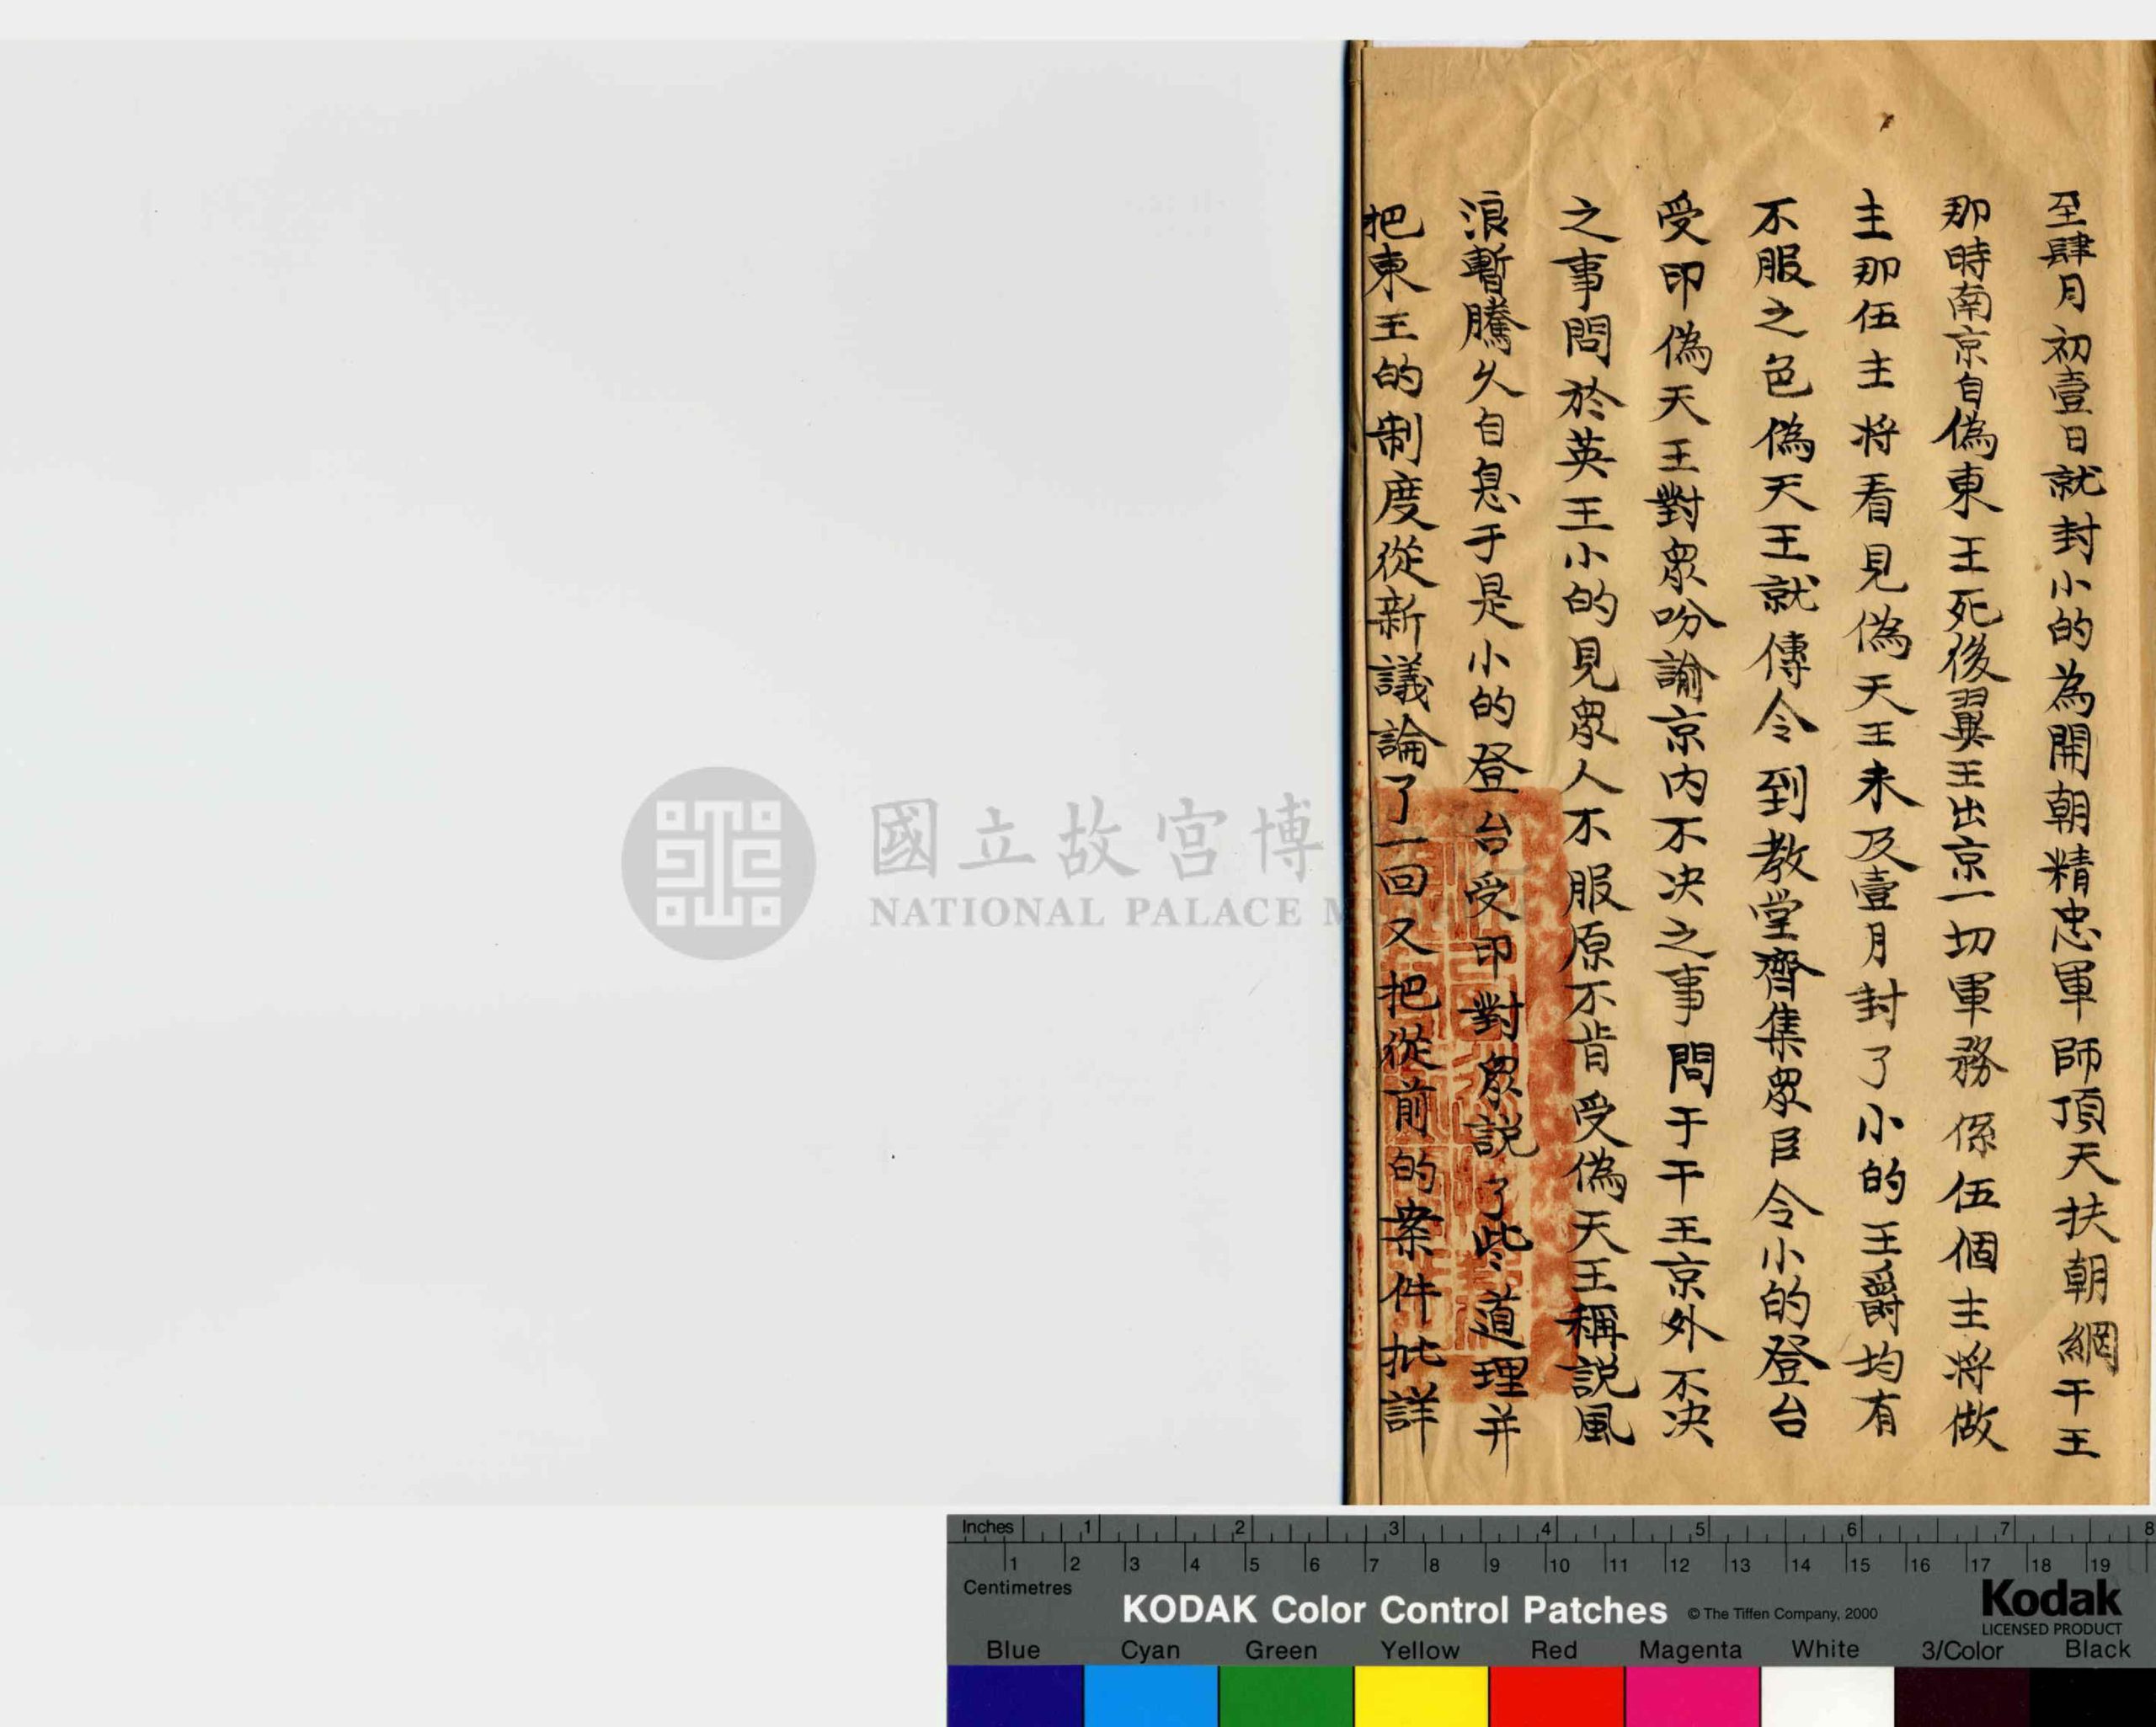 至肆月初壹日就封小的為開朝精忠軍師頂天扶朝綱干王
那時南京自偽東王死後翼王出京一切軍務係伍個主将做
主那伍主将看見偽天王未及壹月封了小的王爵均有
不服之色偽天王就傳令到教堂齊集眾臣令小的登台
受印偽天王對眾吩諭京内不决之事問于干王京外不决
之事問於英王小的見眾人不服原不肯受偽天王稱説風
浪暫騰久自息于是小的登台受印對眾説了些道理并
把東王的制度從新議論了一回又把從前的案件批詳
國立故宮博
NATIONAL PALACE M
Inches 1 2 3 4 5 6 7 8
1 2 3 4 5 6 7 8 9 10 11 12 13 14 15 16 17 18 19
Centimetres
KODAK Color Control Patches © The Tiffen Company, 2000
Kodak
LICENSED PRODUCT
Blue Cyan Green Yellow Red Magenta White 3/Color Black